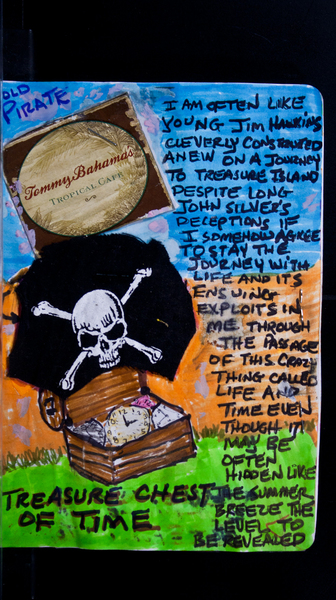 OLD
PIRATE
Tommy Bahama's
TROPICAL CAFE
I AM OFTEN LIKE
YOUNG JIM HAWKINS
CLEVERLY CONSTRUED
ANEW ON A JOURNEY
TO TREASURE ISLAND
DESPITE LONG
JOHN SILVER'S
DECEPTIONS IF
I SOMEHOW AGREE
TO STAY THE
JOURNEY WITH
LIFE AND ITS
ENSUING
EXPLOITS IN
ME THROUGH
THE PASSAGE
OF THIS CRAZY
THING CALLED
LIFE AND
TIME EVEN
THOUGH IT
MAY BE
OFTEN
HIDDEN LIKE
THE SUMMER
BREEZE THE
LEVEL TO
BE REVEALED
TREASURE CHEST
OF TIME